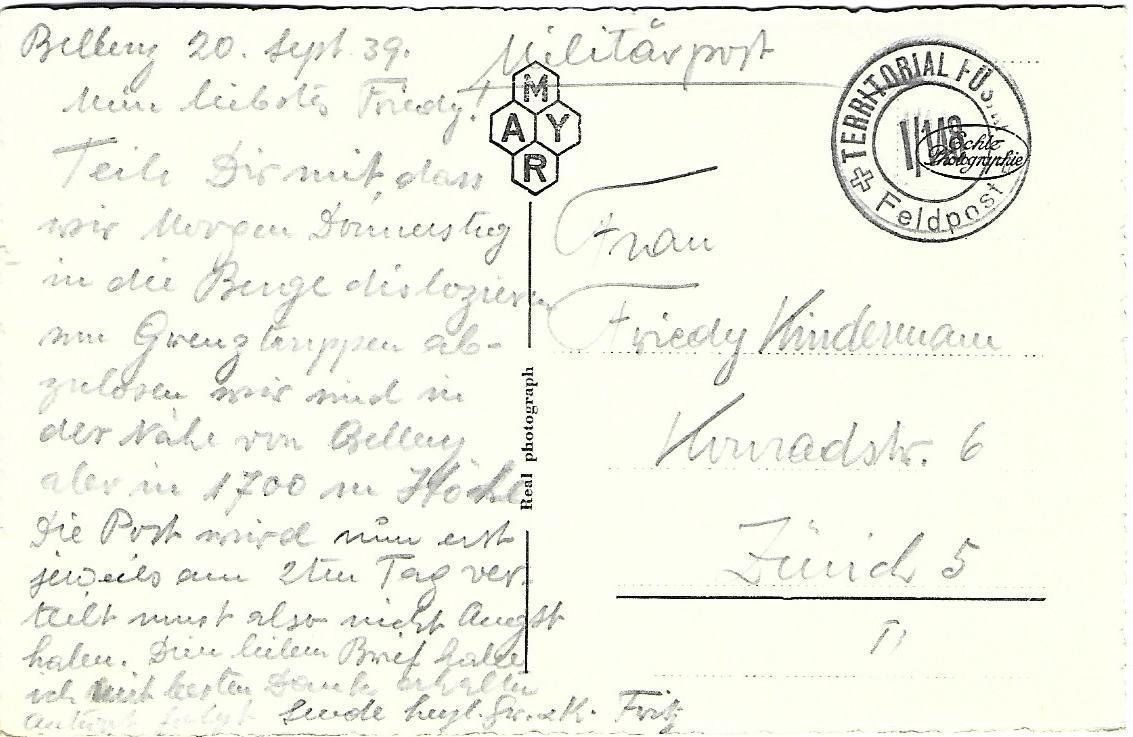 Bellenz 20. Sept. 39.
Mein liebstes Friedy!
Teile Dir mit, dass
wir Morgen Donnerstag
in die Berge dislozieren
um Grenztruppen ab-
zulösen wir sind in
der Nähe von Bellenz
aber in 1700 m Höhe
Die Post wird nun erst
jeweils am 2ten Tag ver-
teilt must also nicht Angst
haben. Dein lieben Brief habe
ich mit besten Dank erhalten
Antwort folgt sende herzl. Gr. & K. Fritz
Militärpost
MAYR
Real photograph
TERRITORIAL FÜS.
I/148
Feldpost
Echte
Photographie
Frau
Friedy Kindermann
Konradstr. 6
Zürich 5